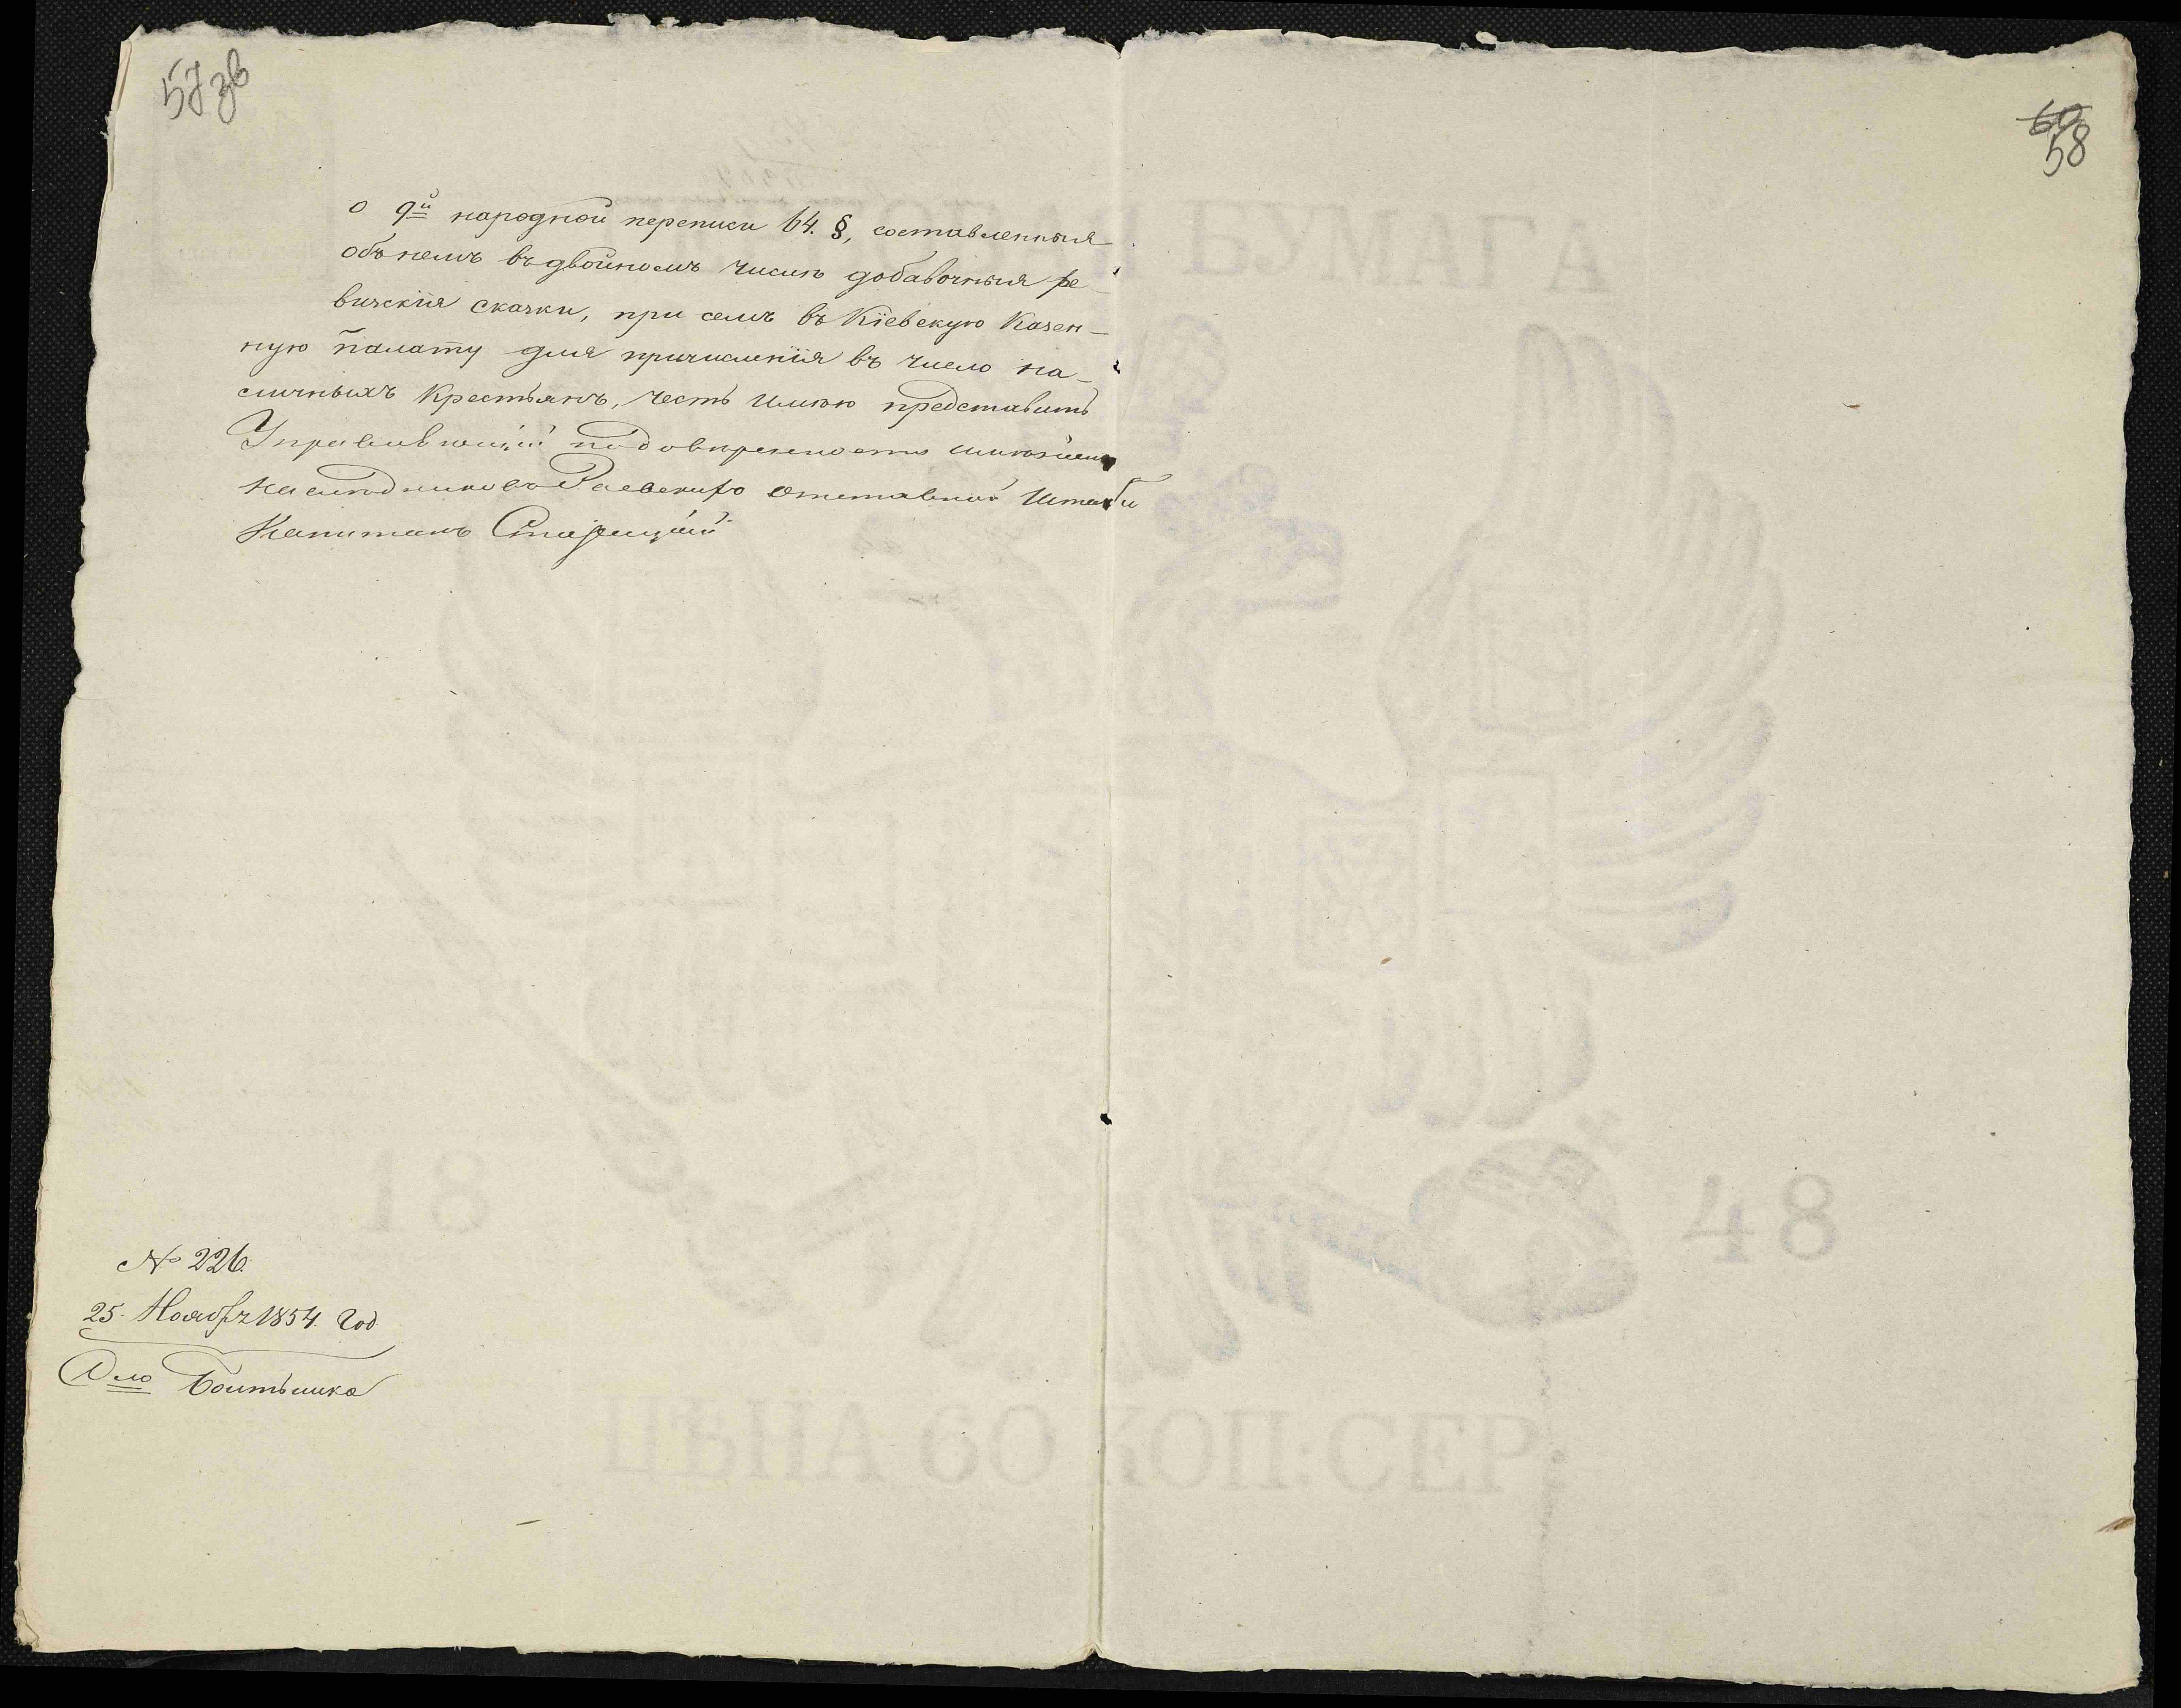 57 зв
60
58
о 9й народной переписи 64. §, составленныя
объ немъ въ двойномъ числѣ добавочныя ре-
визскія сказки, при семъ въ Кіевскую Казен-
ную палату для причисленія въ число на-
личныхъ Крестьянъ, честь имѣю представить
Управляющій по довѣренности имѣніемъ
наслѣдниковъ Раевскаго отставной Штабсъ
Капитанъ Старицкій
18 48
ЦѢНА 60 КОП: СЕР:
№ 226.
25. Ноябр 1854. Год
Болтышка